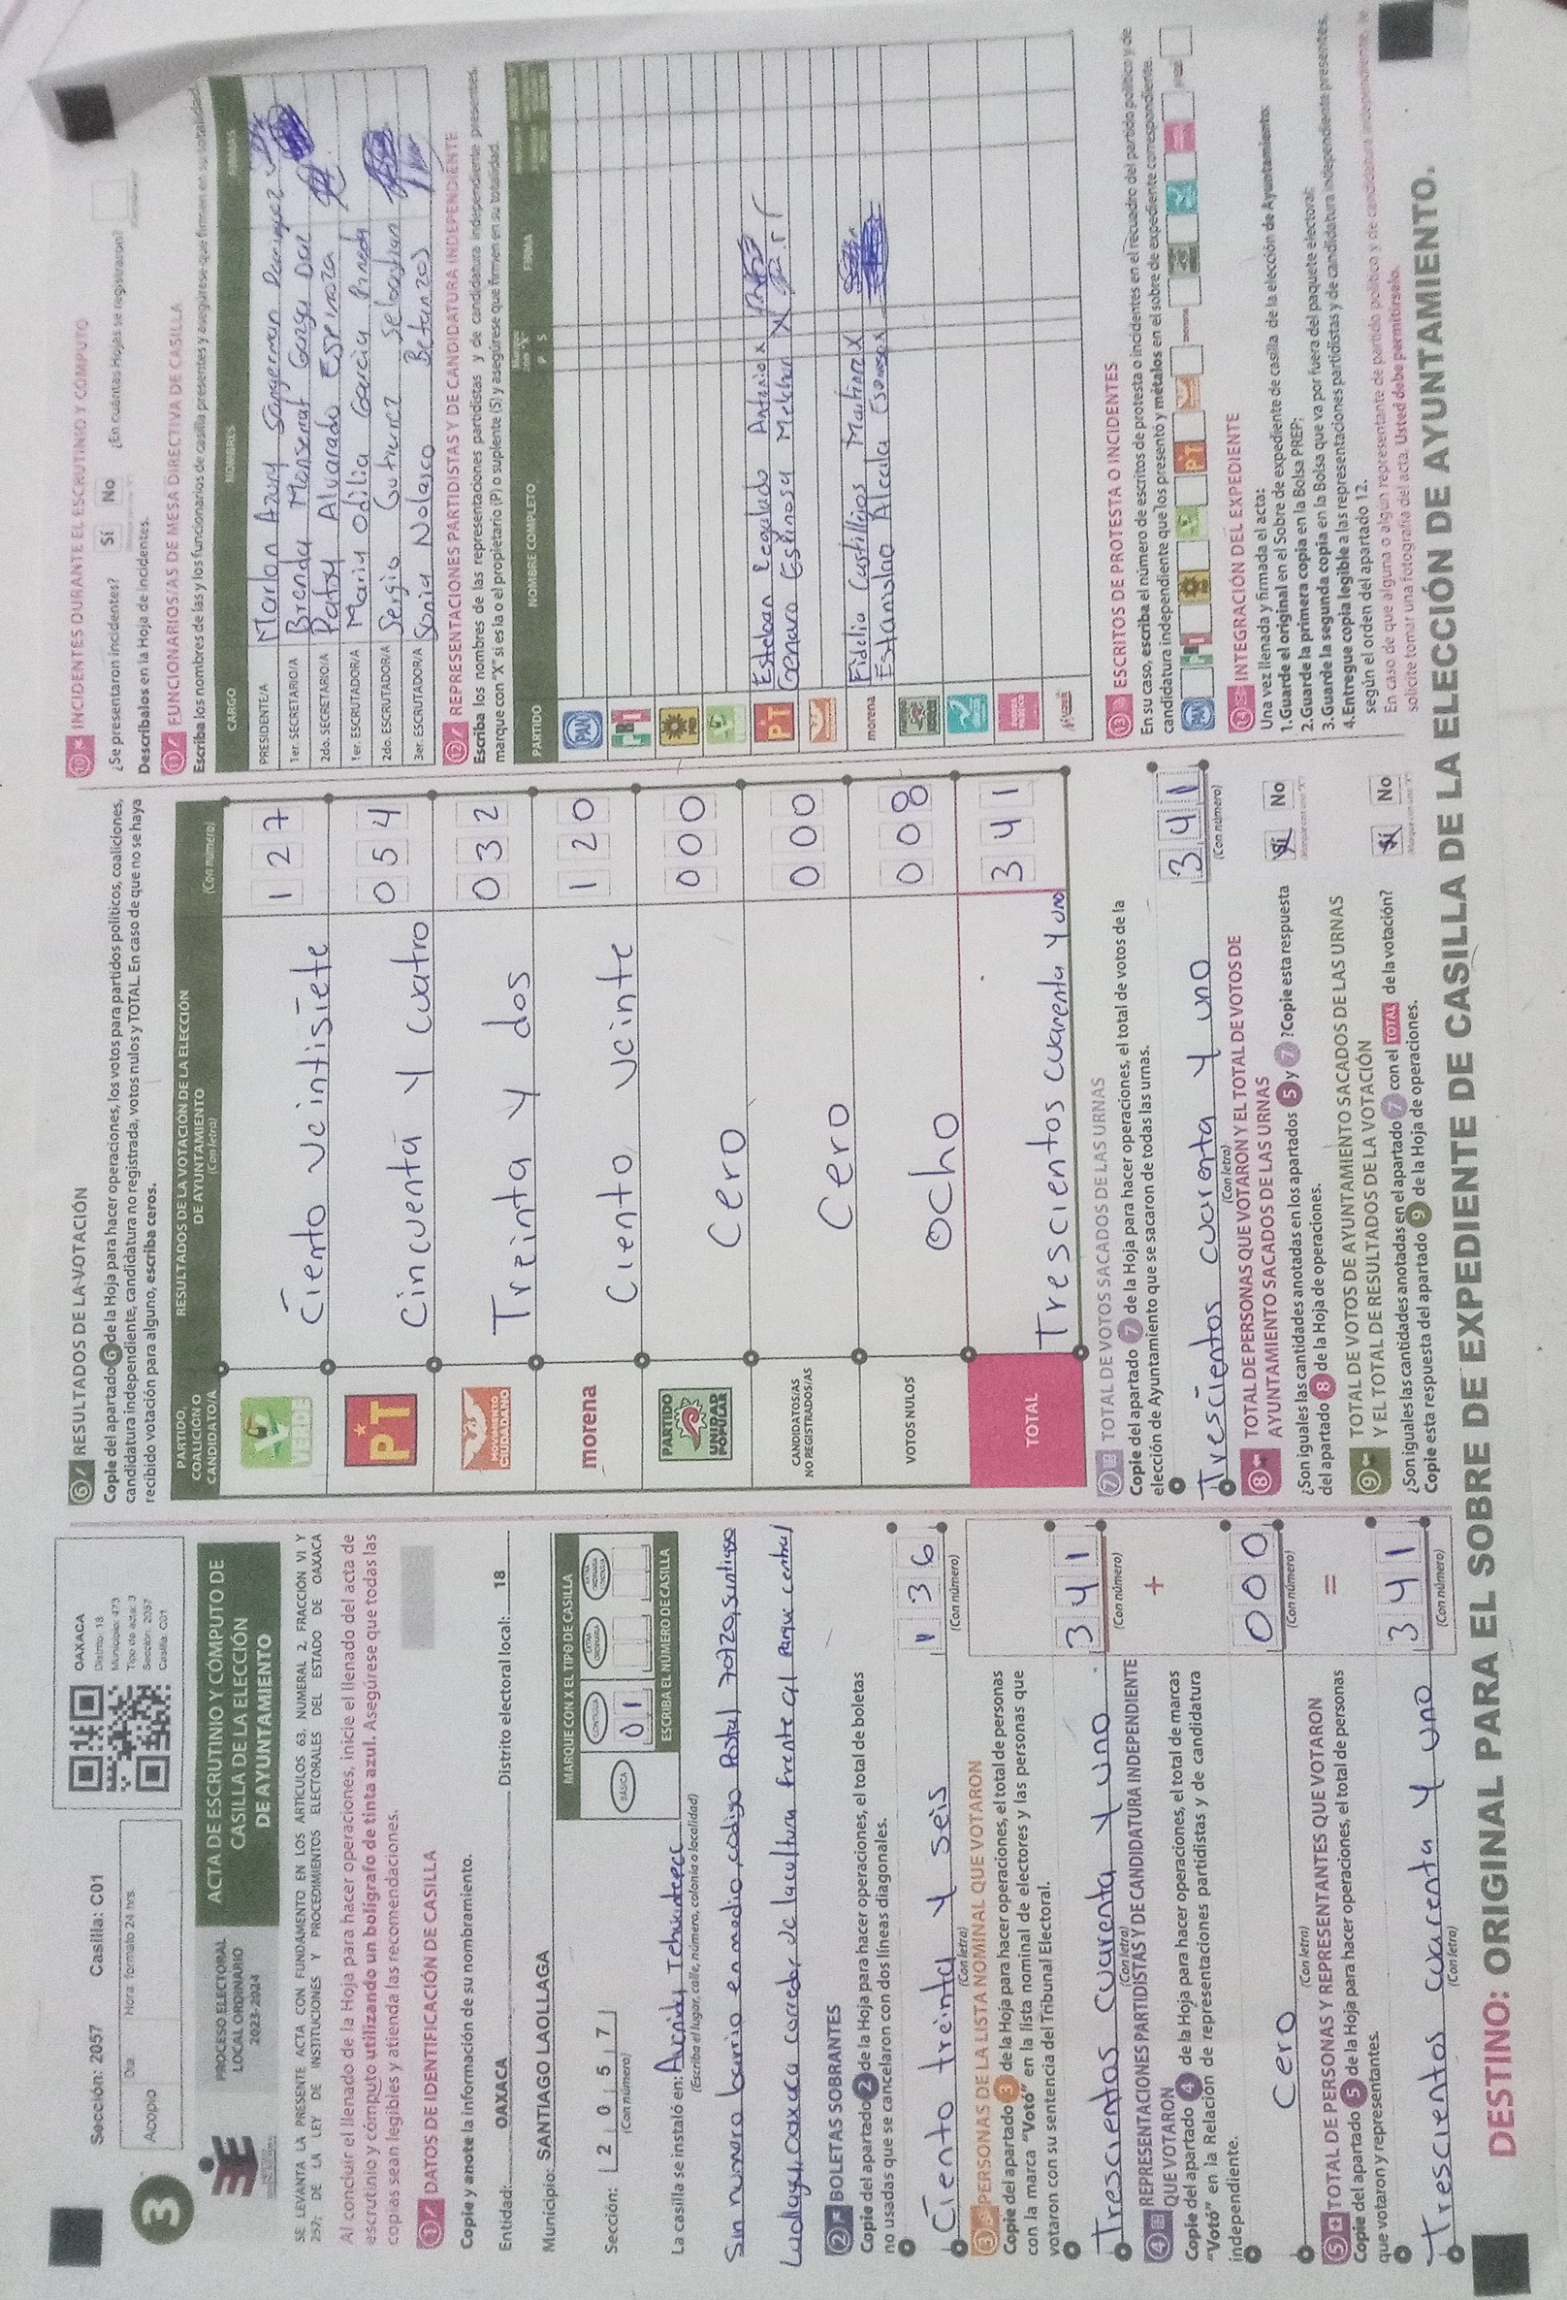 Sección: 2057 Casilla: C01
3
Acopio
Día
Hora: formato 24 hrs.
OAXACA
Distrito: 18
Municipio: 473
Tipo de acta: 3
Sección: 2057
Casilla: C01
PROCESO ELECTORAL
LOCAL ORDINARIO
2023-2024
ACTA DE ESCRUTINIO Y CÓMPUTO DE
CASILLA DE LA ELECCIÓN
DE AYUNTAMIENTO
SE LEVANTA LA PRESENTE ACTA CON FUNDAMENTO EN LOS ARTÍCULOS 63, NUMERAL 2, FRACCIÓN VI Y
257; DE LA LEY DE INSTITUCIONES Y PROCEDIMIENTOS ELECTORALES DEL ESTADO DE OAXACA
Al concluir el llenado de la Hoja para hacer operaciones, inicie el llenado del acta de
escrutinio y cómputo utilizando un bolígrafo de tinta azul. Asegúrese que todas las
copias sean legibles y atienda las recomendaciones.
1 DATOS DE IDENTIFICACIÓN DE CASILLA
Copie y anote la información de su nombramiento.
Entidad: OAXACA Distrito electoral local: 18
Municipio: SANTIAGO LAOLLAGA
Sección: 2 0 5 7
(Con número)
MARQUE CON X EL TIPO DE CASILLA
BÁSICA
CONTIGUA
01
ESCRIBA EL NÚMERO DE CASILLA
La casilla se instaló en:
(Escriba el lugar, calle, número, colonia o localidad)
Sin numero barrio en medio, codigo Postal 70720, santiago
Laollaga, oaxaca corredor de la cultura frente al Parque central
2 BOLETAS SOBRANTES
Copie del apartado 2 de la Hoja para hacer operaciones, el total de boletas
no usadas que se cancelaron con dos líneas diagonales.
Ciento treinta y seis 136
(Con letra) (Con número)
3 PERSONAS DE LA LISTA NOMINAL QUE VOTARON
Copie del apartado 3 de la Hoja para hacer operaciones, el total de personas
con la marca "Votó" en la lista nominal de electores y las personas que
votaron con su sentencia del Tribunal Electoral.
Trescientos cuarenta y uno. 341
(Con letra) (Con número)
4 REPRESENTACIONES PARTIDISTAS Y DE CANDIDATURA INDEPENDIENTE
QUE VOTARON
+
Copie del apartado 4 de la Hoja para hacer operaciones, el total de marcas
"Votó" en la Relación de representaciones partidistas y de candidatura
independiente.
Cero 000
(Con letra) (Con número)
5 TOTAL DE PERSONAS Y REPRESENTANTES QUE VOTARON
=
Copie del apartado 5 de la Hoja para hacer operaciones, el total de personas
que votaron y representantes.
Trescientos cuarenta y uno 341
(Con letra) (Con número)
6 RESULTADOS DE LA VOTACIÓN
Copie del apartado 6 de la Hoja para hacer operaciones, los votos para partidos políticos, coaliciones,
candidatura independiente, candidatura no registrada, votos nulos y TOTAL. En caso de que no se haya
recibido votación para alguno, escriba ceros.
PARTIDO,
COALICIÓN O
CANDIDATO/A
RESULTADOS DE LA VOTACIÓN DE LA ELECCIÓN
DE AYUNTAMIENTO
(Con letra) (Con número)
VERDE Ciento veintisiete 127
PT Cincuenta y cuatro 054
MOVIMIENTO CIUDADANO Treinta y dos 032
morena Ciento veinte 120
PARTIDO UNIDAD POPULAR Cero 000
CANDIDATOS/AS
NO REGISTRADOS/AS Cero 000
VOTOS NULOS Ocho 008
TOTAL Trescientos cuarenta y uno 341
7 TOTAL DE VOTOS SACADOS DE LAS URNAS
Copie del apartado 7 de la Hoja para hacer operaciones, el total de votos de la
elección de Ayuntamiento que se sacaron de todas las urnas.
Trescientos cuarenta y uno 341
(Con letra) (Con número)
8 TOTAL DE PERSONAS QUE VOTARON Y EL TOTAL DE VOTOS DE
AYUNTAMIENTO SACADOS DE LAS URNAS
¿Son iguales las cantidades anotadas en los apartados 5 y 7? Copie esta respuesta
del apartado 8 de la Hoja de operaciones.
Sí No
9 TOTAL DE VOTOS DE AYUNTAMIENTO SACADOS DE LAS URNAS
Y EL TOTAL DE RESULTADOS DE LA VOTACIÓN
¿Son iguales las cantidades anotadas en el apartado 7 con el TOTAL de la votación?
Copie esta respuesta del apartado 9 de la Hoja de operaciones.
Sí No
10 INCIDENTES DURANTE EL ESCRUTINIO Y CÓMPUTO
¿Se presentaron incidentes? Sí No ¿En cuántas Hojas se registraron?
Descríbalos en la Hoja de incidentes.
11 FUNCIONARIOS/AS DE MESA DIRECTIVA DE CASILLA
Escriba los nombres de las y los funcionarios de casilla presentes y asegúrese que firmen en su totalidad.
CARGO NOMBRES FIRMAS
PRESIDENTE/A Marlon Azury Sangerman
1er. SECRETARIO/A Brenda Monserat
2do. SECRETARIO/A Patsy Alvarado Espinoza
1er. ESCRUTADOR/A Maria Odilia Garcia Pineda
2do. ESCRUTADOR/A Sergio Gutierrez Sebastian
3er. ESCRUTADOR/A Sonia Nolasco Betanzos
12 REPRESENTACIONES PARTIDISTAS Y DE CANDIDATURA INDEPENDIENTE
Escriba los nombres de las representaciones partidistas y de candidatura independiente presentes,
marque con "X" si es la o el propietario (P) o suplente (S) y asegúrese que firmen en su totalidad.
PARTIDO NOMBRE COMPLETO P S FIRMA
PAN
PRI
PT Esteban Regalado Antonio X
Genaro Espinosa Melchor X
morena Fidelia Castillejos Martinez X
Estanislao Alcala
13 ESCRITOS DE PROTESTA O INCIDENTES
En su caso, escriba el número de escritos de protesta o incidentes en el recuadro del partido político y de
candidatura independiente que los presentó y métalos en el sobre de expediente correspondiente.
PAN PRI PT morena
14 INTEGRACIÓN DEL EXPEDIENTE
Una vez llenada y firmada el acta:
1. Guarde el original en el Sobre de expediente de casilla de la elección de Ayuntamiento;
2. Guarde la primera copia en la Bolsa PREP;
3. Guarde la segunda copia en la Bolsa que va por fuera del paquete electoral;
4. Entregue copia legible a las representaciones partidistas y de candidatura independiente presentes,
según el orden del apartado 12.
En caso de que alguna o algún representante de partido político y de candidatura independiente, le
solicite tomar una fotografía del acta. Usted debe permitírselo.
DESTINO: ORIGINAL PARA EL SOBRE DE EXPEDIENTE DE CASILLA DE LA ELECCIÓN DE AYUNTAMIENTO.